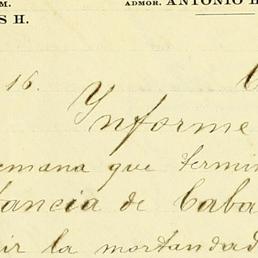 M.
ADMOR. ANTONIO
S H.
16.
Ynforme
emana que termin
tancia de Caba
ir la mortandad